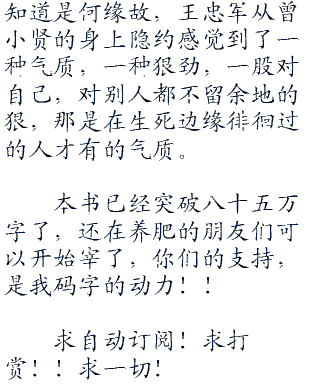 知道是何缘故，王忠军从曾
小贤的身上隐约感觉到了一
种气质，一种狠劲，一股对
自己，对别人都不留余地的
狠，那是在生死边缘徘徊过
的人才有的气质。
本书已经突破八十五万
字了，还在养肥的朋友们可
以开始宰了，你们的支持，
是我码字的动力！！
求自动订阅！求打
赏！！求一切！